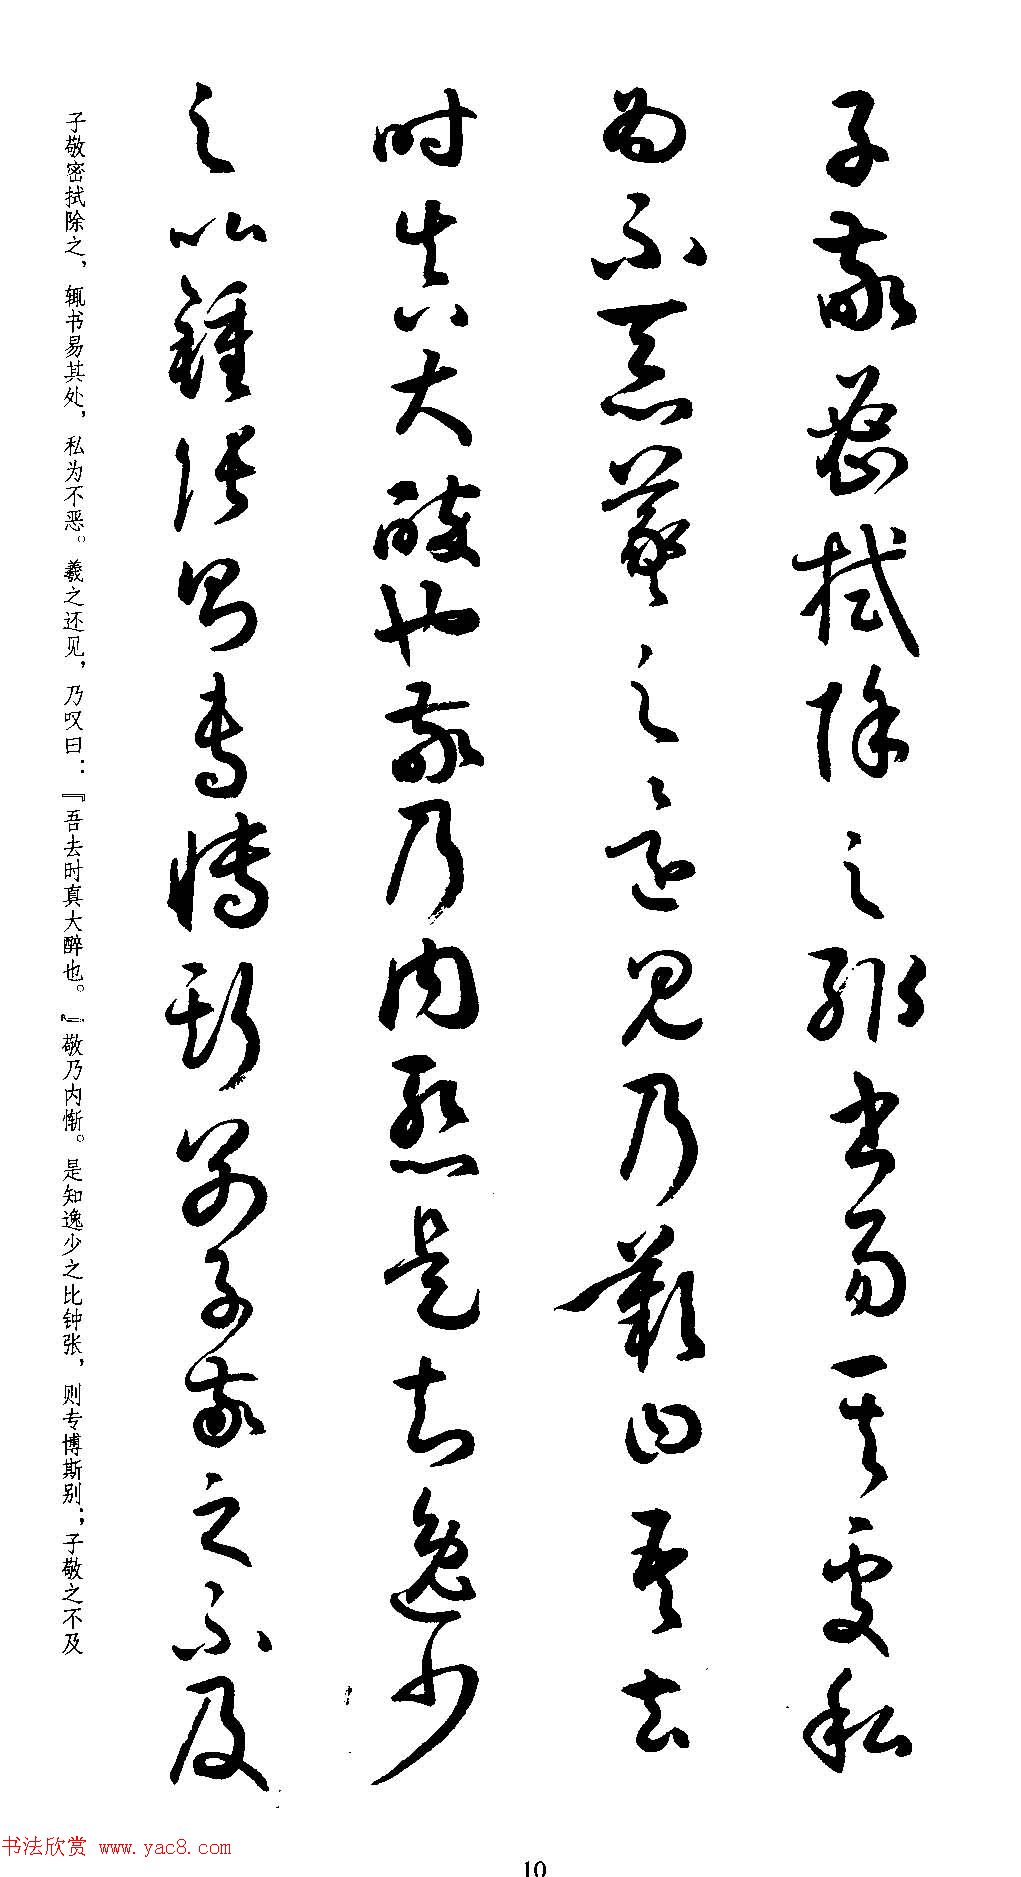 子敬密拭除之輒書易其處私
為不惡羲之還見乃歎曰吾去
時真大醉也敬乃内慙是知逸少
之比鍾張則專博斯别子敬之不及
子敬密拭除之，辄书易其处，私为不恶。羲之还见，乃叹曰：『吾去时真大醉也。』敬乃内惭。是知逸少之比钟张，则专博斯别；子敬之不及
书法欣赏 www.yac8.com
10